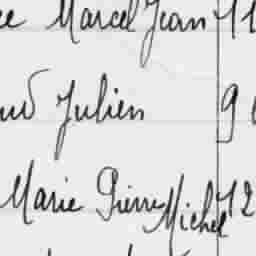 Marcel Jean 11
Julien 9
Marie Pierre Michel 12